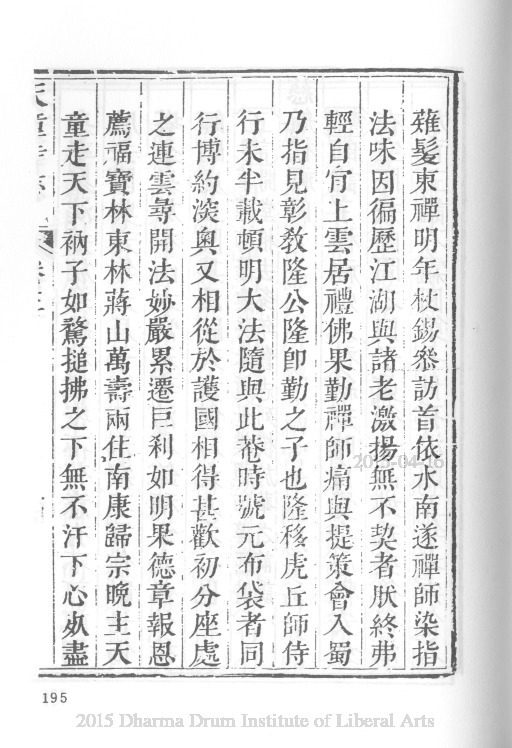 薙髮東禪明年杖錫叅訪首依水南遂禪師染指
法味因徧歷江湖與諸老激揚無不契者肰終弗
輕自肯上雲居禮佛果勤禪師痛與提策會入蜀
乃指見彰敎隆公隆卽勤之子也隆移虎丘師侍
行未半載頓明大法隨與此菴時號元布袋者同
行博約淡奧又相從於護國相得甚歡初分座處
之連雲尋開法妙嚴累遷巨刹如明果德章報恩
薦福寶林東林蔣山萬壽兩住南康歸宗晚主天
童走天下衲子如鶩搥拂之下無不汗下心肰盡
天童寺志 卷三
195
2015-04-16
2015 Dharma Drum Institute of Liberal Arts